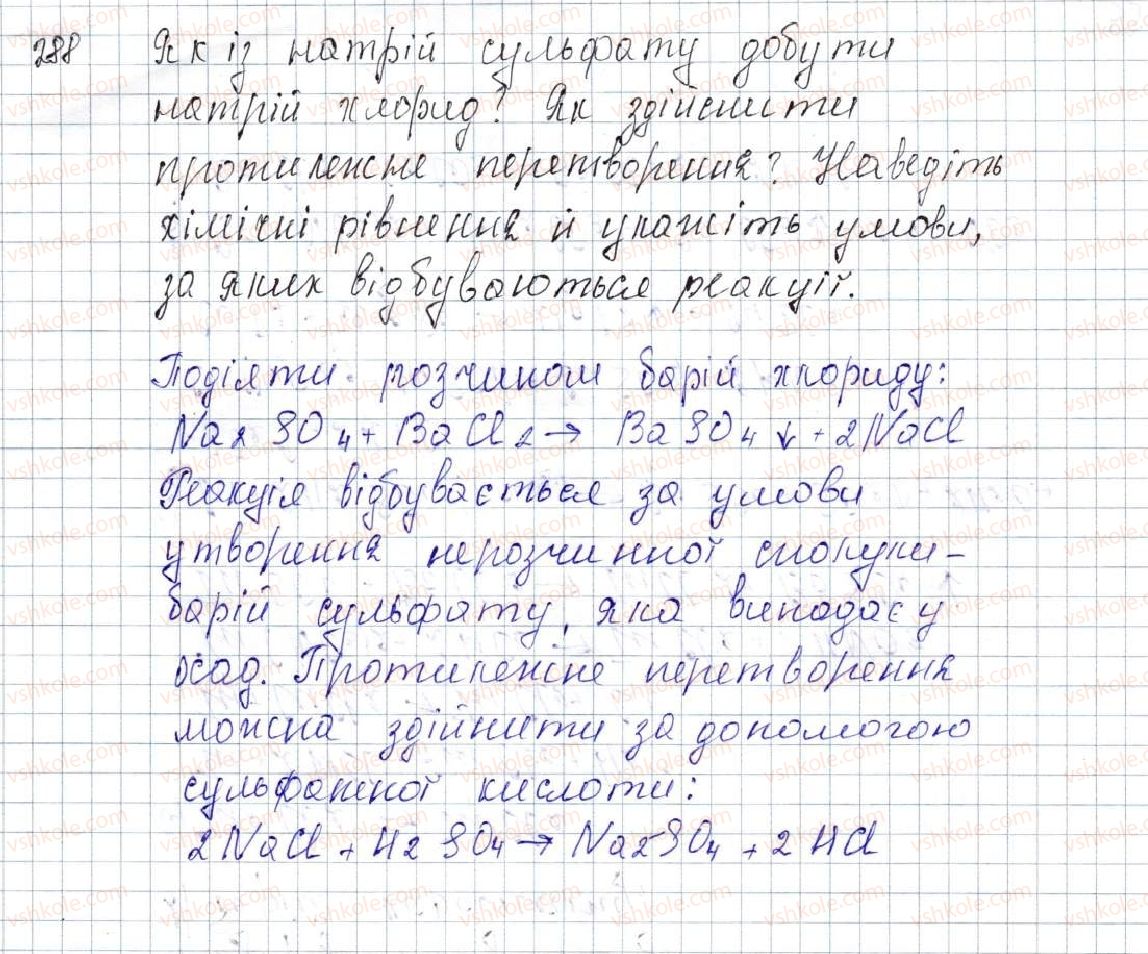 288 Як із натрій сульфату добути
натрій хлорид? Як здійснити
протилежне перетворення? Наведіть
хімічні рівнення й укажіть умови,
за яких відбуваються реакції.
Подіяти розчином барій хлориду:
Na2SO4 + BaCl2 → BaSO4↓ + 2NaCl
Реакція відбувається за умови
утворення нерозчинної сполуки –
барій сульфату, яка випадає у
осад. Протилежне перетворення
можна здійнити за допомогою
сульфатної кислоти:
2NaCl + H2SO4 → Na2SO4 + 2HCl
vshkole.com